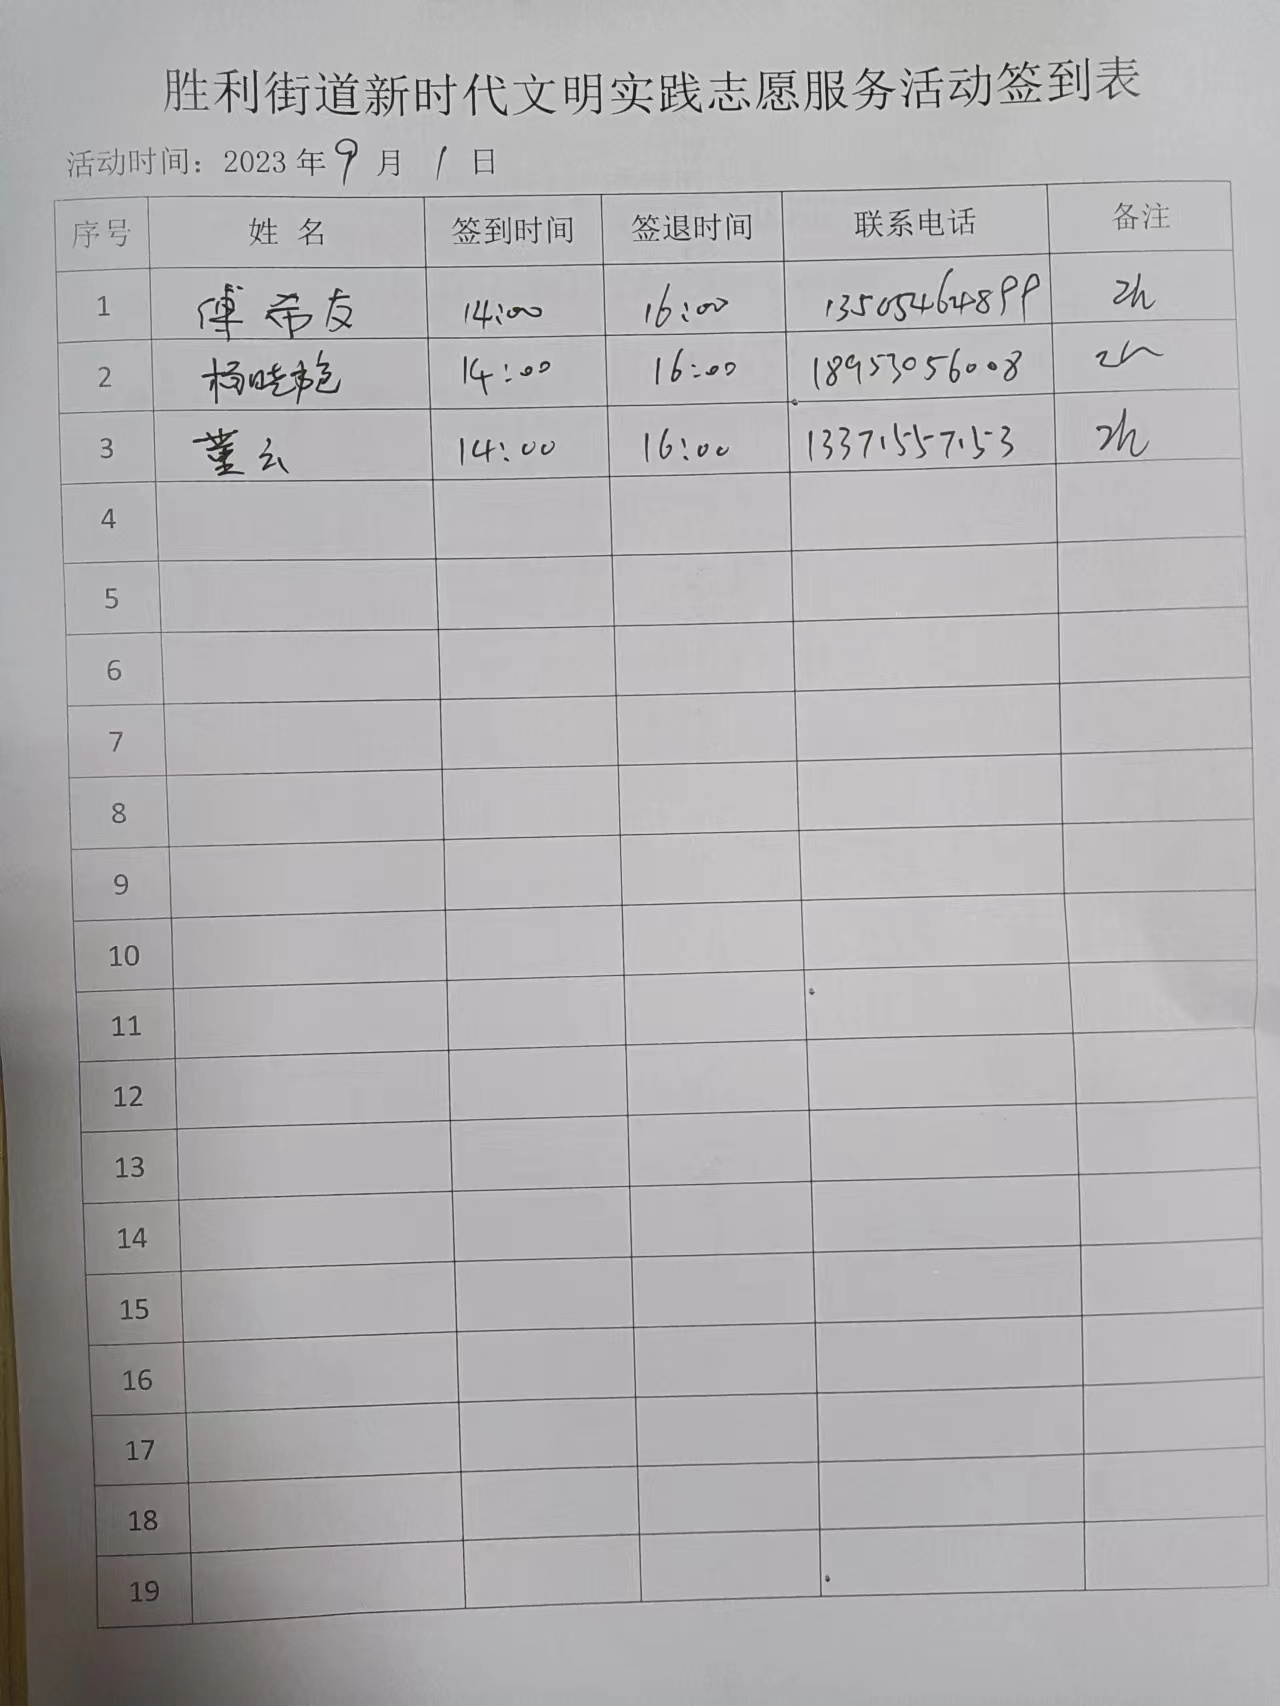 胜利街道新时代文明实践志愿服务活动签到表
活动时间：2023年9月1日
序号 姓名 签到时间 签退时间 联系电话 备注
1 傅希友 14:00 16:00 13505464899 2h
2 杨晓艳 14:00 16:00 18953056008 2h
3 董云 14:00 16:00 13371557153 2h
4
5
6
7
8
9
10
11
12
13
14
15
16
17
18
19